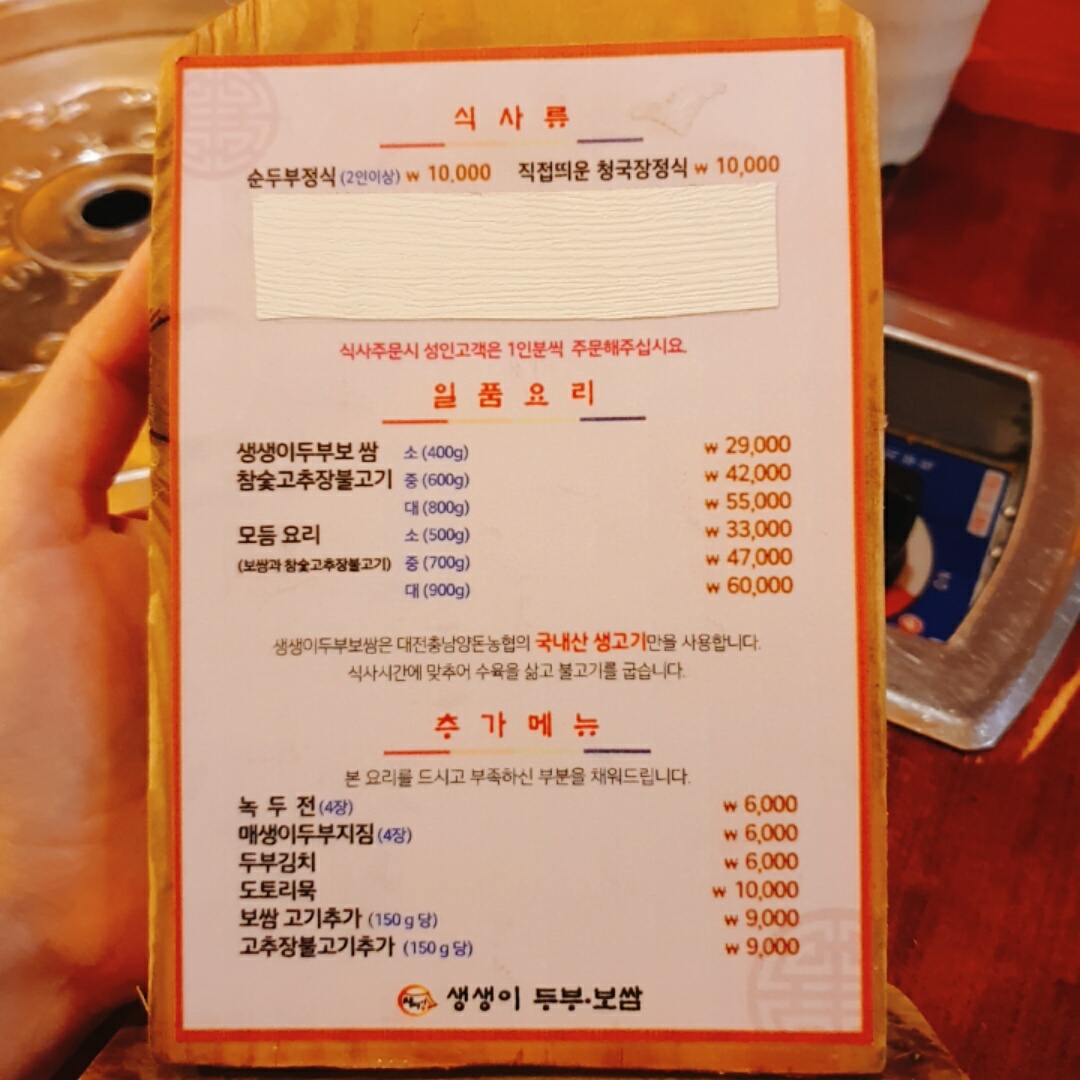 식사류
순두부정식 (2인이상) ₩ 10,000 직접띄운 청국장정식 ₩ 10,000
식사주문시 성인고객은 1인분씩 주문해주십시요.
일품요리
생생이두부보쌈 소 (400g) ₩ 29,000
참숯고추장불고기 중 (600g) ₩ 42,000
대 (800g) ₩ 55,000
모듬 요리 소 (500g) ₩ 33,000
(보쌈과 참숯고추장불고기) 중 (700g) ₩ 47,000
대 (900g) ₩ 60,000
생생이두부보쌈은 대전충남양돈농협의 국내산 생고기만을 사용합니다.
식사시간에 맞추어 수육을 삶고 불고기를 굽습니다.
추가메뉴
본 요리를 드시고 부족하신 부분을 채워드립니다.
녹두전 (4장) ₩ 6,000
매생이두부지짐 (4장) ₩ 6,000
두부김치 ₩ 6,000
도토리묵 ₩ 10,000
보쌈 고기추가 (150g당) ₩ 9,000
고추장불고기추가 (150g당) ₩ 9,000
생생이 두부·보쌈